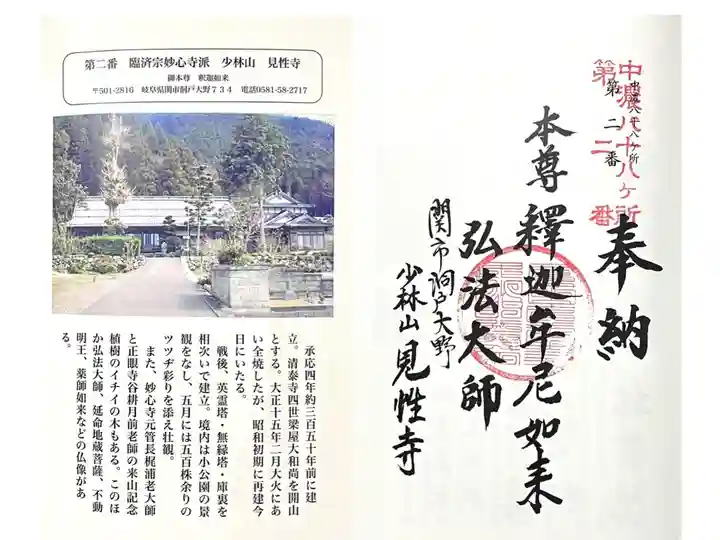 第二番 臨済宗妙心寺派 少林山 見性寺
御本尊 釈迦如来
〒501-2816 岐阜県関市洞戸大野734 電話0581-58-2717
承応四年約三百五十年前に建
立。清泰寺四世梁屋大和尚を開山
とする。大正十五年二月大火にあ
い全焼したが、昭和初期に再建今
日にいたる。
戦後、英霊塔・無縁塔・庫裏を
相次いで建立。境内は小公園の景
観をなし、五月には五百株余りの
ツツヂ彩りを添え壮観。
また、妙心寺元管長梶浦老大師
と正眼寺谷耕月前老師の来山記念
植樹のイチイの木もある。このほ
か弘法大師、延命地蔵菩薩、不動
明王、薬師如来などの仏像があ
る。
奉納
中濃八十八ヶ所
第二番
中濃八十八ヶ所
第二番
本尊釋迦牟尼如来
弘法大師
関市洞戸大野
少林山見性寺